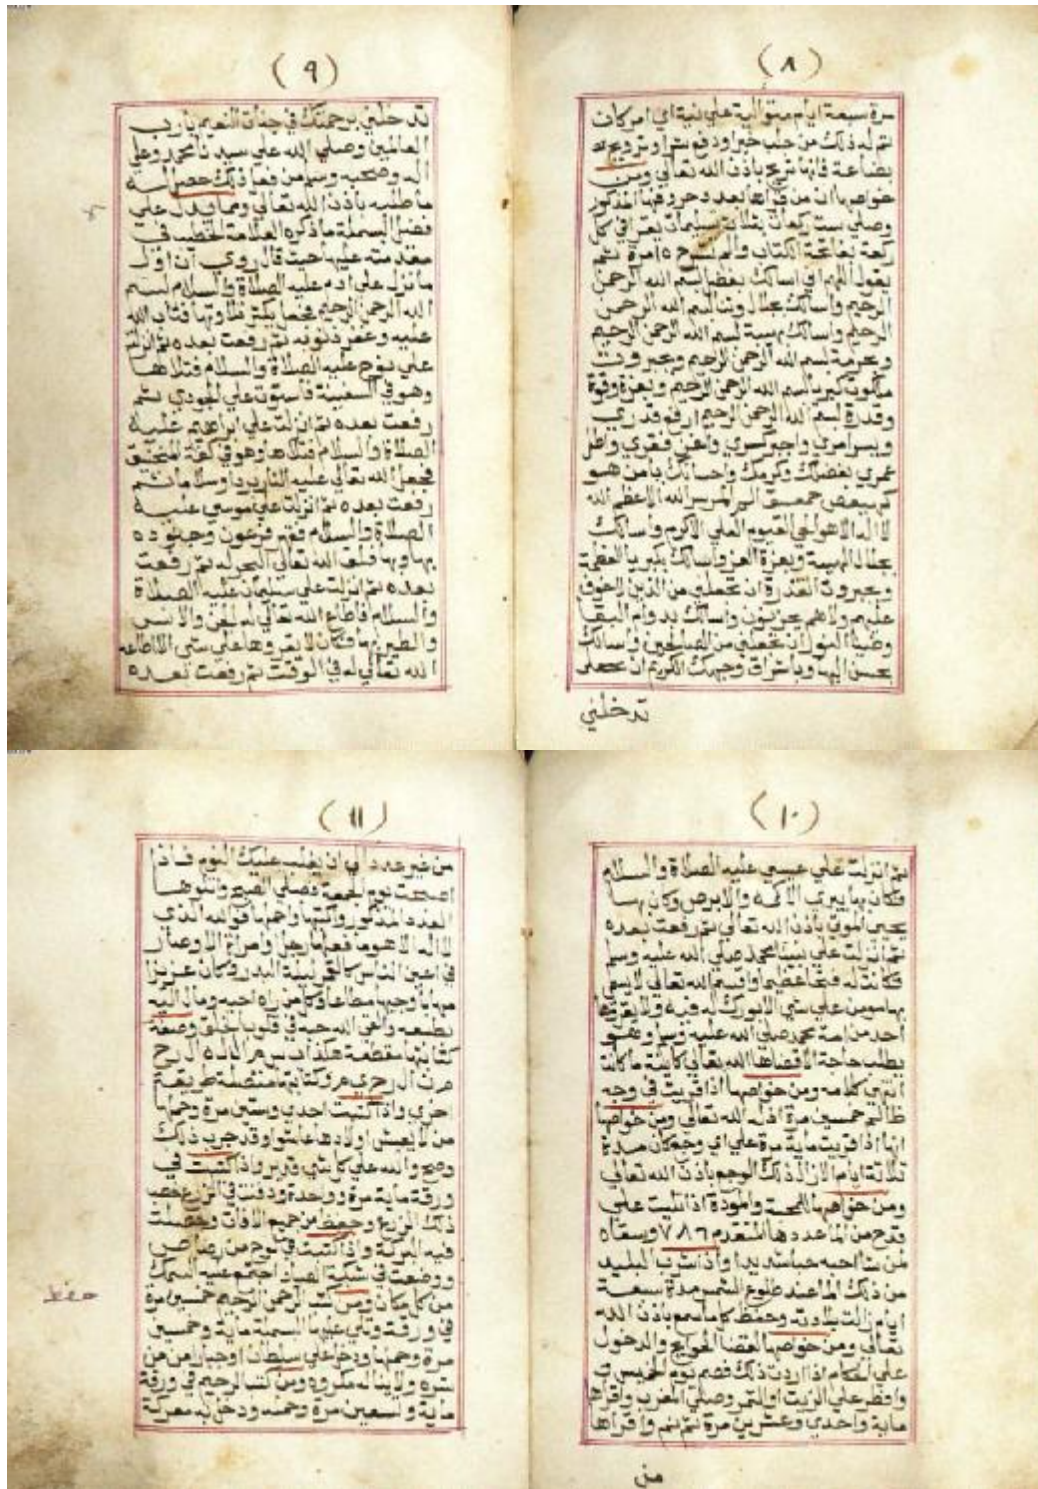 (٨)
مرة سبعة ايام متوالية علي نية اي امر كان
تم له ذلك من جلب خير او دفع شر او ترويج
بضاعة فانها تربح باذن الله تعالي ومن
خواصها ان من قراها بعدد حروفها المذكور
وصلي ست ركعات بثلاث تسليمات يقرا في كل
ركعة بفاتحة الكتاب والم نشرح مرة ثم
يقول اللهم اني اسالك بفضل بسم الله الرحمن
الرحيم واسالك بجلال وثنا بسم الله الرحمن
الرحيم واسالك بهيبة بسم الله الرحمن الرحيم
وبحرمة بسم الله الرحمن الرحيم وبجبروت
ملكوت كبريا بسم الله الرحمن الرحيم وبعزة وقوة
وقدرة بسم الله الرحمن الرحيم ارفع قدري
ويسر امري واجبر كسري واغن فقري واطل
عمري بفضلك وكرمك واحسانك يامن هو
كهيعص حمعسق الم المر الله الاعظم الله
لا اله الا هو الحي القيوم العلي الاكرم واسالك
بجلال الهيبة وبعزة العز واسالك بكبريا العظمة
وبجبروت القدرة ان تجعلني من الذين لا خوف
عليهم ولا هم يحزنون واسالك بدوام البقا
وضيا النور ان تجعلني من الصالحين واسالك
بحسن البها وباشراق وجهك الكريم ان
تدخلني
(٩)
تدخلني برحمتك في جنات النعيم يارب
العالمين وصلي الله علي سيدنا محمد وعلي
اله وصحبه وسلم من فعل ذلك حصل له
ما طلبه باذن الله تعالي ومما يدل علي
فضل البسملة ما ذكره العلامة الخطيب في
مقدمته عليها حيث قال روي ان اول
ما نزل علي ادم عليه الصلاة والسلام بسم
الله الرحمن الرحيم فجعل يكثر تلاوتها فتاب الله
عليه وغفر ذنوبه ثم رفعت بعده ثم انزلت
علي نوح عليه الصلاة والسلام فتلاها
وهو في السفينة فاستوت علي الجودي ثم
رفعت بعده ثم انزلت علي ابراهيم عليه
الصلاة والسلام فتلاها وهو في كفة المنجنيق
فجعل الله تعالي عليه النار بردا وسلاما ثم
رفعت بعده ثم انزلت علي موسي عليه
الصلاة والسلام فقهر فرعون وجنوده
بها وبها فلق الله تعالي البحر له ثم رفعت
بعده ثم انزلت علي سليمان عليه الصلاة
والسلام فاطاع الله تعالي له الجن والانس
والطير بها فكان لا يقروها علي شي الا اطاعه
الله تعالي له في الوقت ثم رفعت بعده
(١٠)
ثم انزلت علي عيسي عليه الصلاة والسلام
فكان بها يبري الاكمه والابرص وكان بها
يحيي الموتي باذن الله تعالي ثم رفعت بعده
ثم انزلت علي نبينا محمد صلي الله عليه وسلم
فكانت له فتحا عظيما واقسم الله تعالي لا يسمي
بها مومن علي شي الا بورك له فيه ولا يقروها
احد من امة محمد صلي الله عليه وسلم وهو
يطلب حاجة الا قضاها الله تعالي كاينة ما كانت
انتهي كلامه ومن خواصها اذا قريت في وجه
ظالم خمسين مرة اذله الله تعالي ومن خواصها
انها اذا قريت ماية مرة علي اي وجع كان مدة
ثلاثة ايام الا زال ذلك الوجع باذن الله تعالي
ومن خواصها للمحبة والمودة اذا تليت علي
قدح من الما عددها المتقدم ٧٨٦ وسقاه
لمن شا احبه حبا شديدا واذا شرب البليد
من ذلك الما عند طلوع الشمس مدة سبعة
ايام زالت بلادته وحفظ كل ما سمع باذن الله
تعالي ومن خواصها لقضا الحوايج والدخول
علي الحكام اذا اردت ذلك فصم يوم الخميس
وافطر علي الزيت او التمر وصلي المغرب واقراها
ماية واحدي وعشرين مرة ثم نم واقراها
من
(١١)
من غير عدد الي ان يغلب عليك النوم فاذا
اصبحت يوم الجمعة فصلي الصبح واتلوها
العدد المذكور واكتبها واحملها فوالله الذي
لا اله الا هو ما فعلها رجل او امراة الا وصار
في اعين الناس كالقمر ليلة البدر وكان عزيزا
مهابا وجيها مطاعا وكل من راه احبه ومال اليه
بطبعه والقي الله حبه في قلوب الخلق وصفة
كتابتها مقطعة هكذا ب س م ا ل ل ه ا ل ر ح
م ن ا ل ر ح ي م وكتابتها متصلة طريقة
اخري واذا كتبت احدي وستين مرة وحملها
من لا يعيش اولادها عاشوا وقد جرب ذلك
وصح والله علي كل شي قدير واذا كتبت في
ورقة ماية مرة وواحدة ودفنت في الزرع خصب
ذلك الزرع وحفظ من جميع الافات وحصلت
فيه البركة واذا كتبت في لوح من رصاص
ووضعت في شبكة الصياد اجتمع عليه السمك
من كل مكان ومن كتب الرحمن الرحيم خمسين مرة
في ورقة وتلي عليها البسملة ماية وخمسين
مرة وحملها ودخل علي سلطان او جبار امن من
شره ولا يناله مكروه ومن كتب الرحيم في ورقة
ماية وتسعين مرة وحمله ودخل به معركة
حفظ